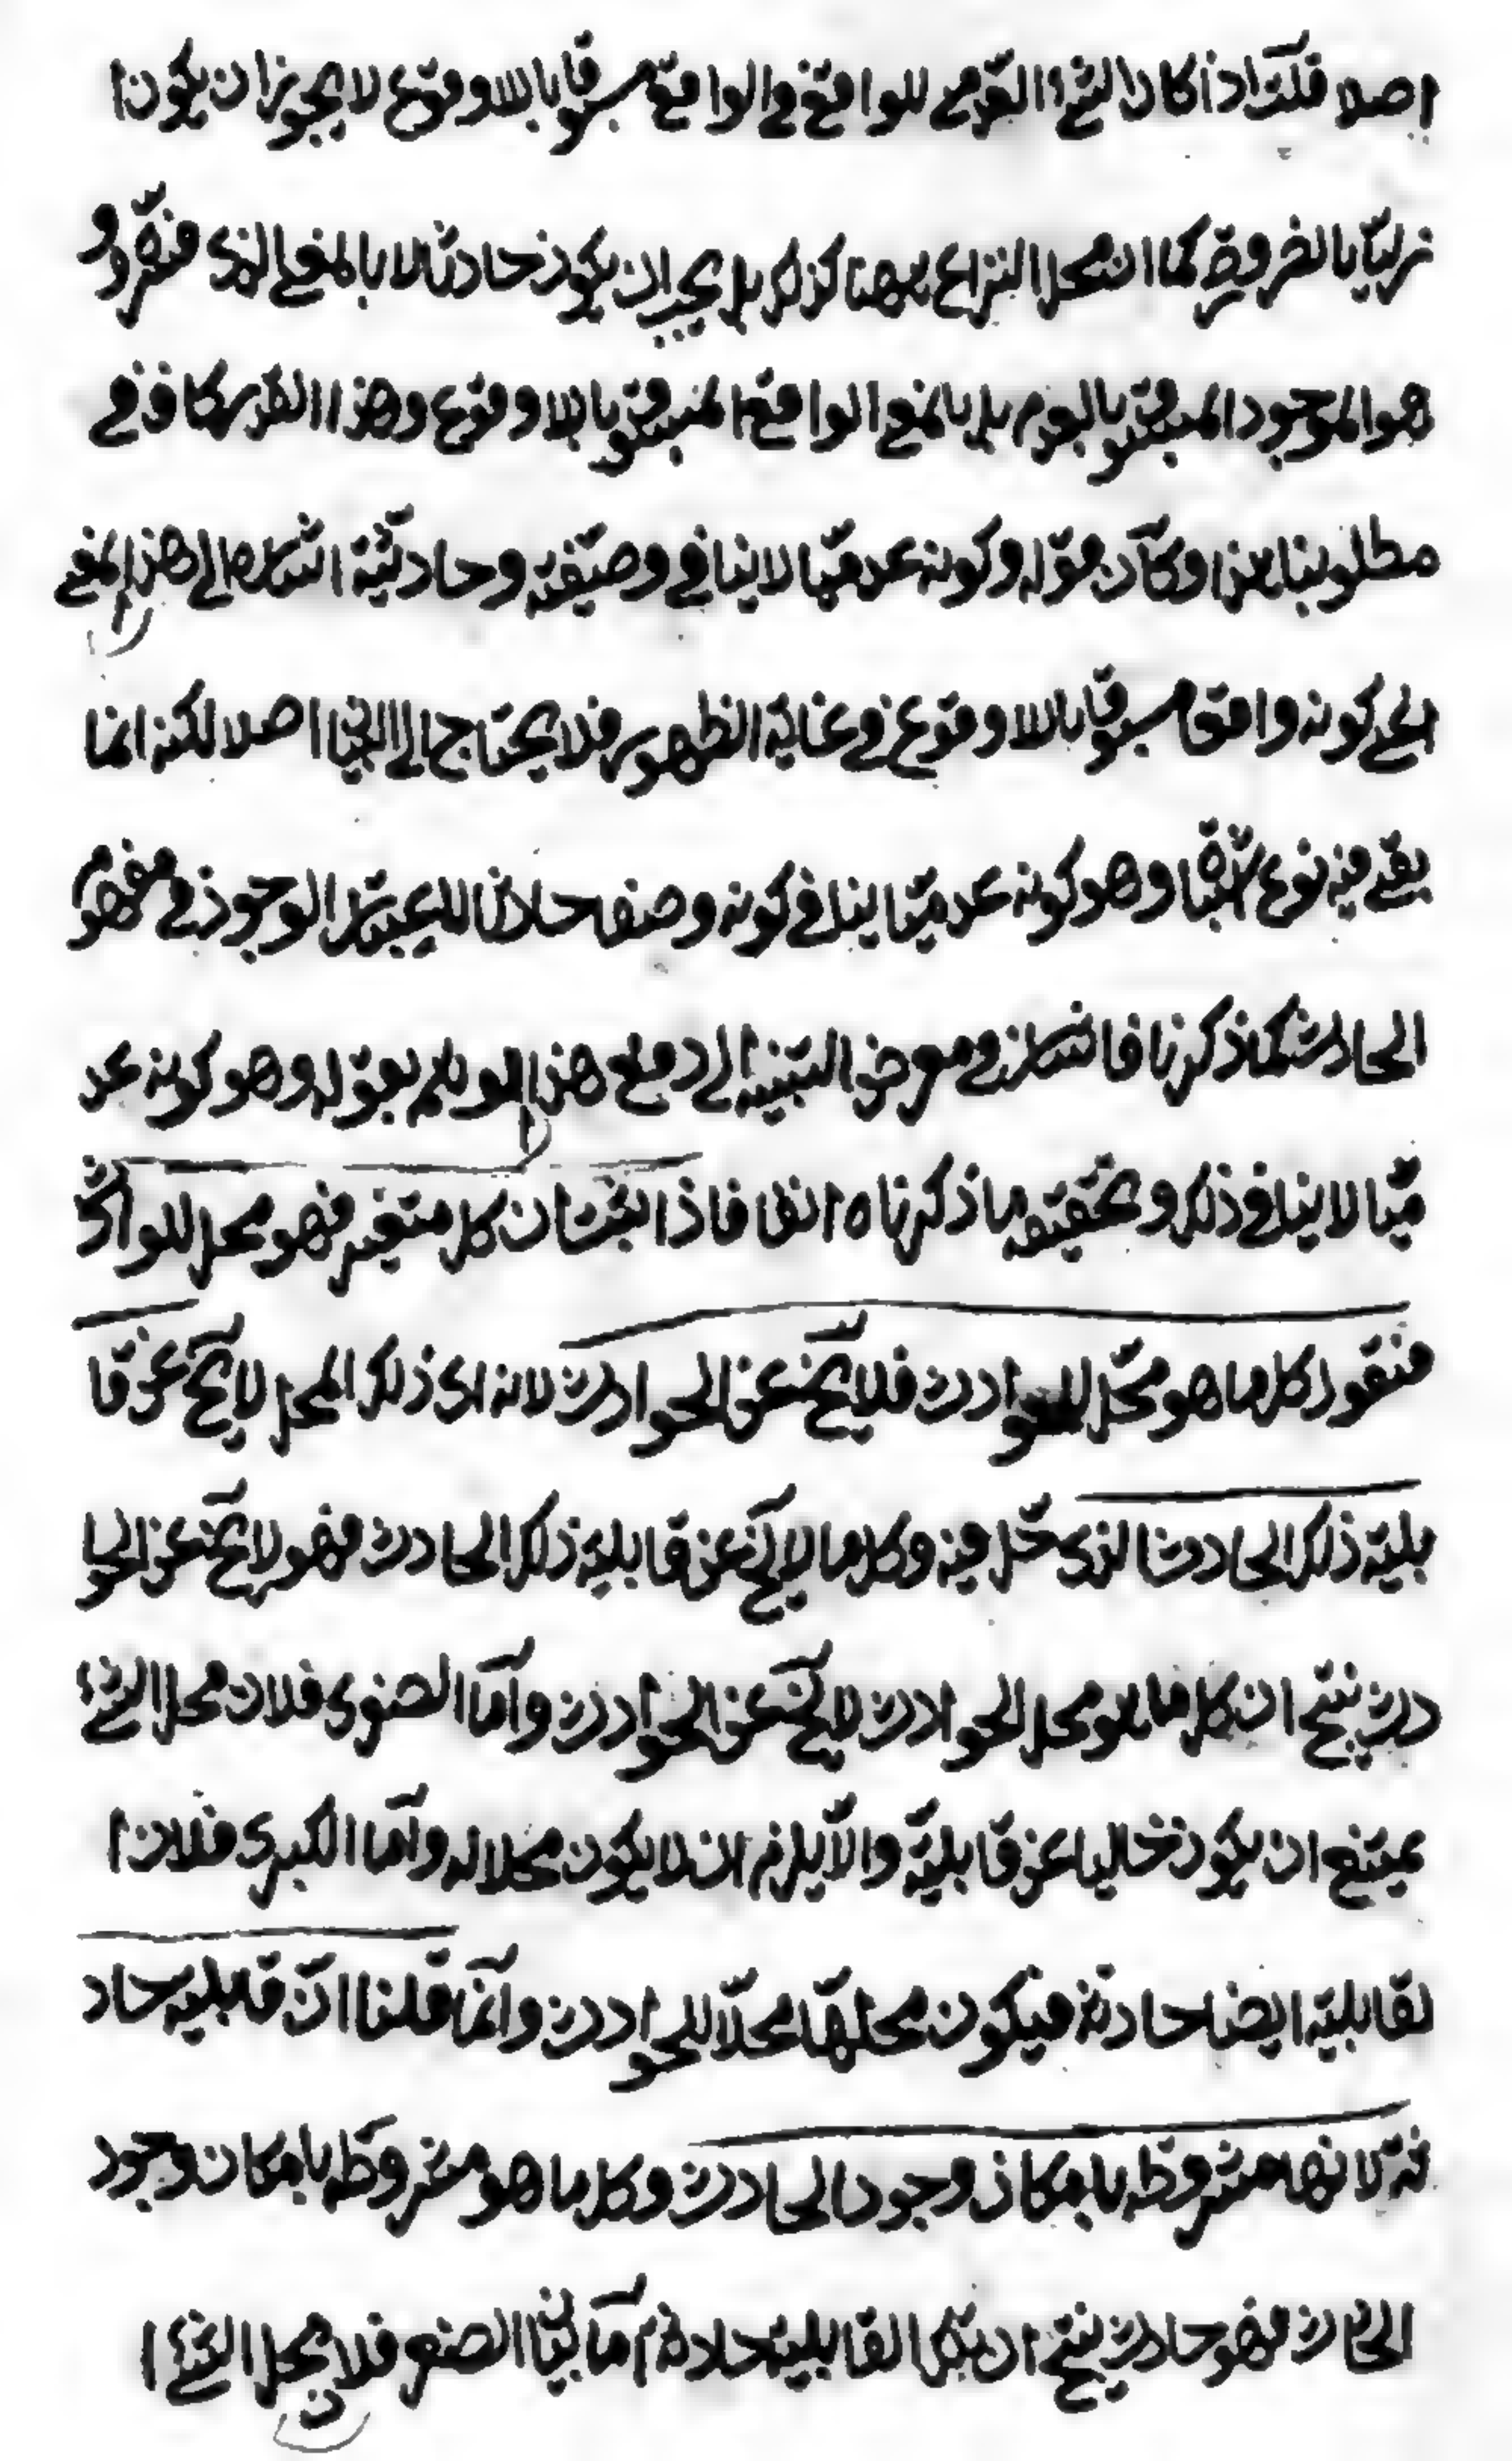 اصلا قلت اذا كان الشئ العدمى للواقع فى الواقع مسبوقا باللاوقوع لا يجوز ان يكون ا
زليا بالضرورة كما ان محل النزاع ههنا كذلك بل يجب ان يكون حادثا لا بالمعنى الذى
هو الموجود المسبوق بالعدم بل بالمعنى الواقع المسبوق باللاوقوع وهذا القدر كاف فى
مطلوبنا هذا وكان قوله وكونه عدميا لا ينافى وصفيته وحادثيته اشارة الى هذا المعنى
اعنى كونه واقعا مسبوقا باللاوقوع فى غاية الظهور فلا يحتاج الى البيان اصلا لكنه انما
بقى فيه نوع اشتباه وهو كونه عدميا ينافى كونه وصفا حادثا لاعتبار الوجود فى مفهوم
الحادث كما ذكرنا فاشار فى معرض التنبيه الى دفع هذا الوهم بقوله وهو كونه عد
ميا لا ينافى ذلك وتحقيقه ما ذكرناه انفا فاذا ثبت ان كل متغير فهو محل للحوادث
فنقول كل ما هو محل للحوادث فلا يخ عن الحوادث لانه اى ذلك المحل لا يخ عن قا
بلية ذلك الحادث الذى حل فيه وكل ما لا يخ عن قابلية ذلك الحادث فهو لا يخ عن الحوا
دث ينتج ان كل ما هو محل الحوادث لا يخ عن الحوادث واما الصغرى فلان محل الشئ
يمتنع ان يكون خاليا عن قابليته والا يلزم ان لا يكون محلا له واما الكبرى فلان ا
لقابلية ايضا حادثة فيكون محلها محلا للحوادث وانما قلنا ان قابليته حاد
ثة لانها مشروطة بامكان وجود الحادث وكل ما هو مشروط بامكان وجود
الحادث فهو حادث ينتج ان تلك القابلية حادثة اما بيان الصغرى فلان محل الشئ ا